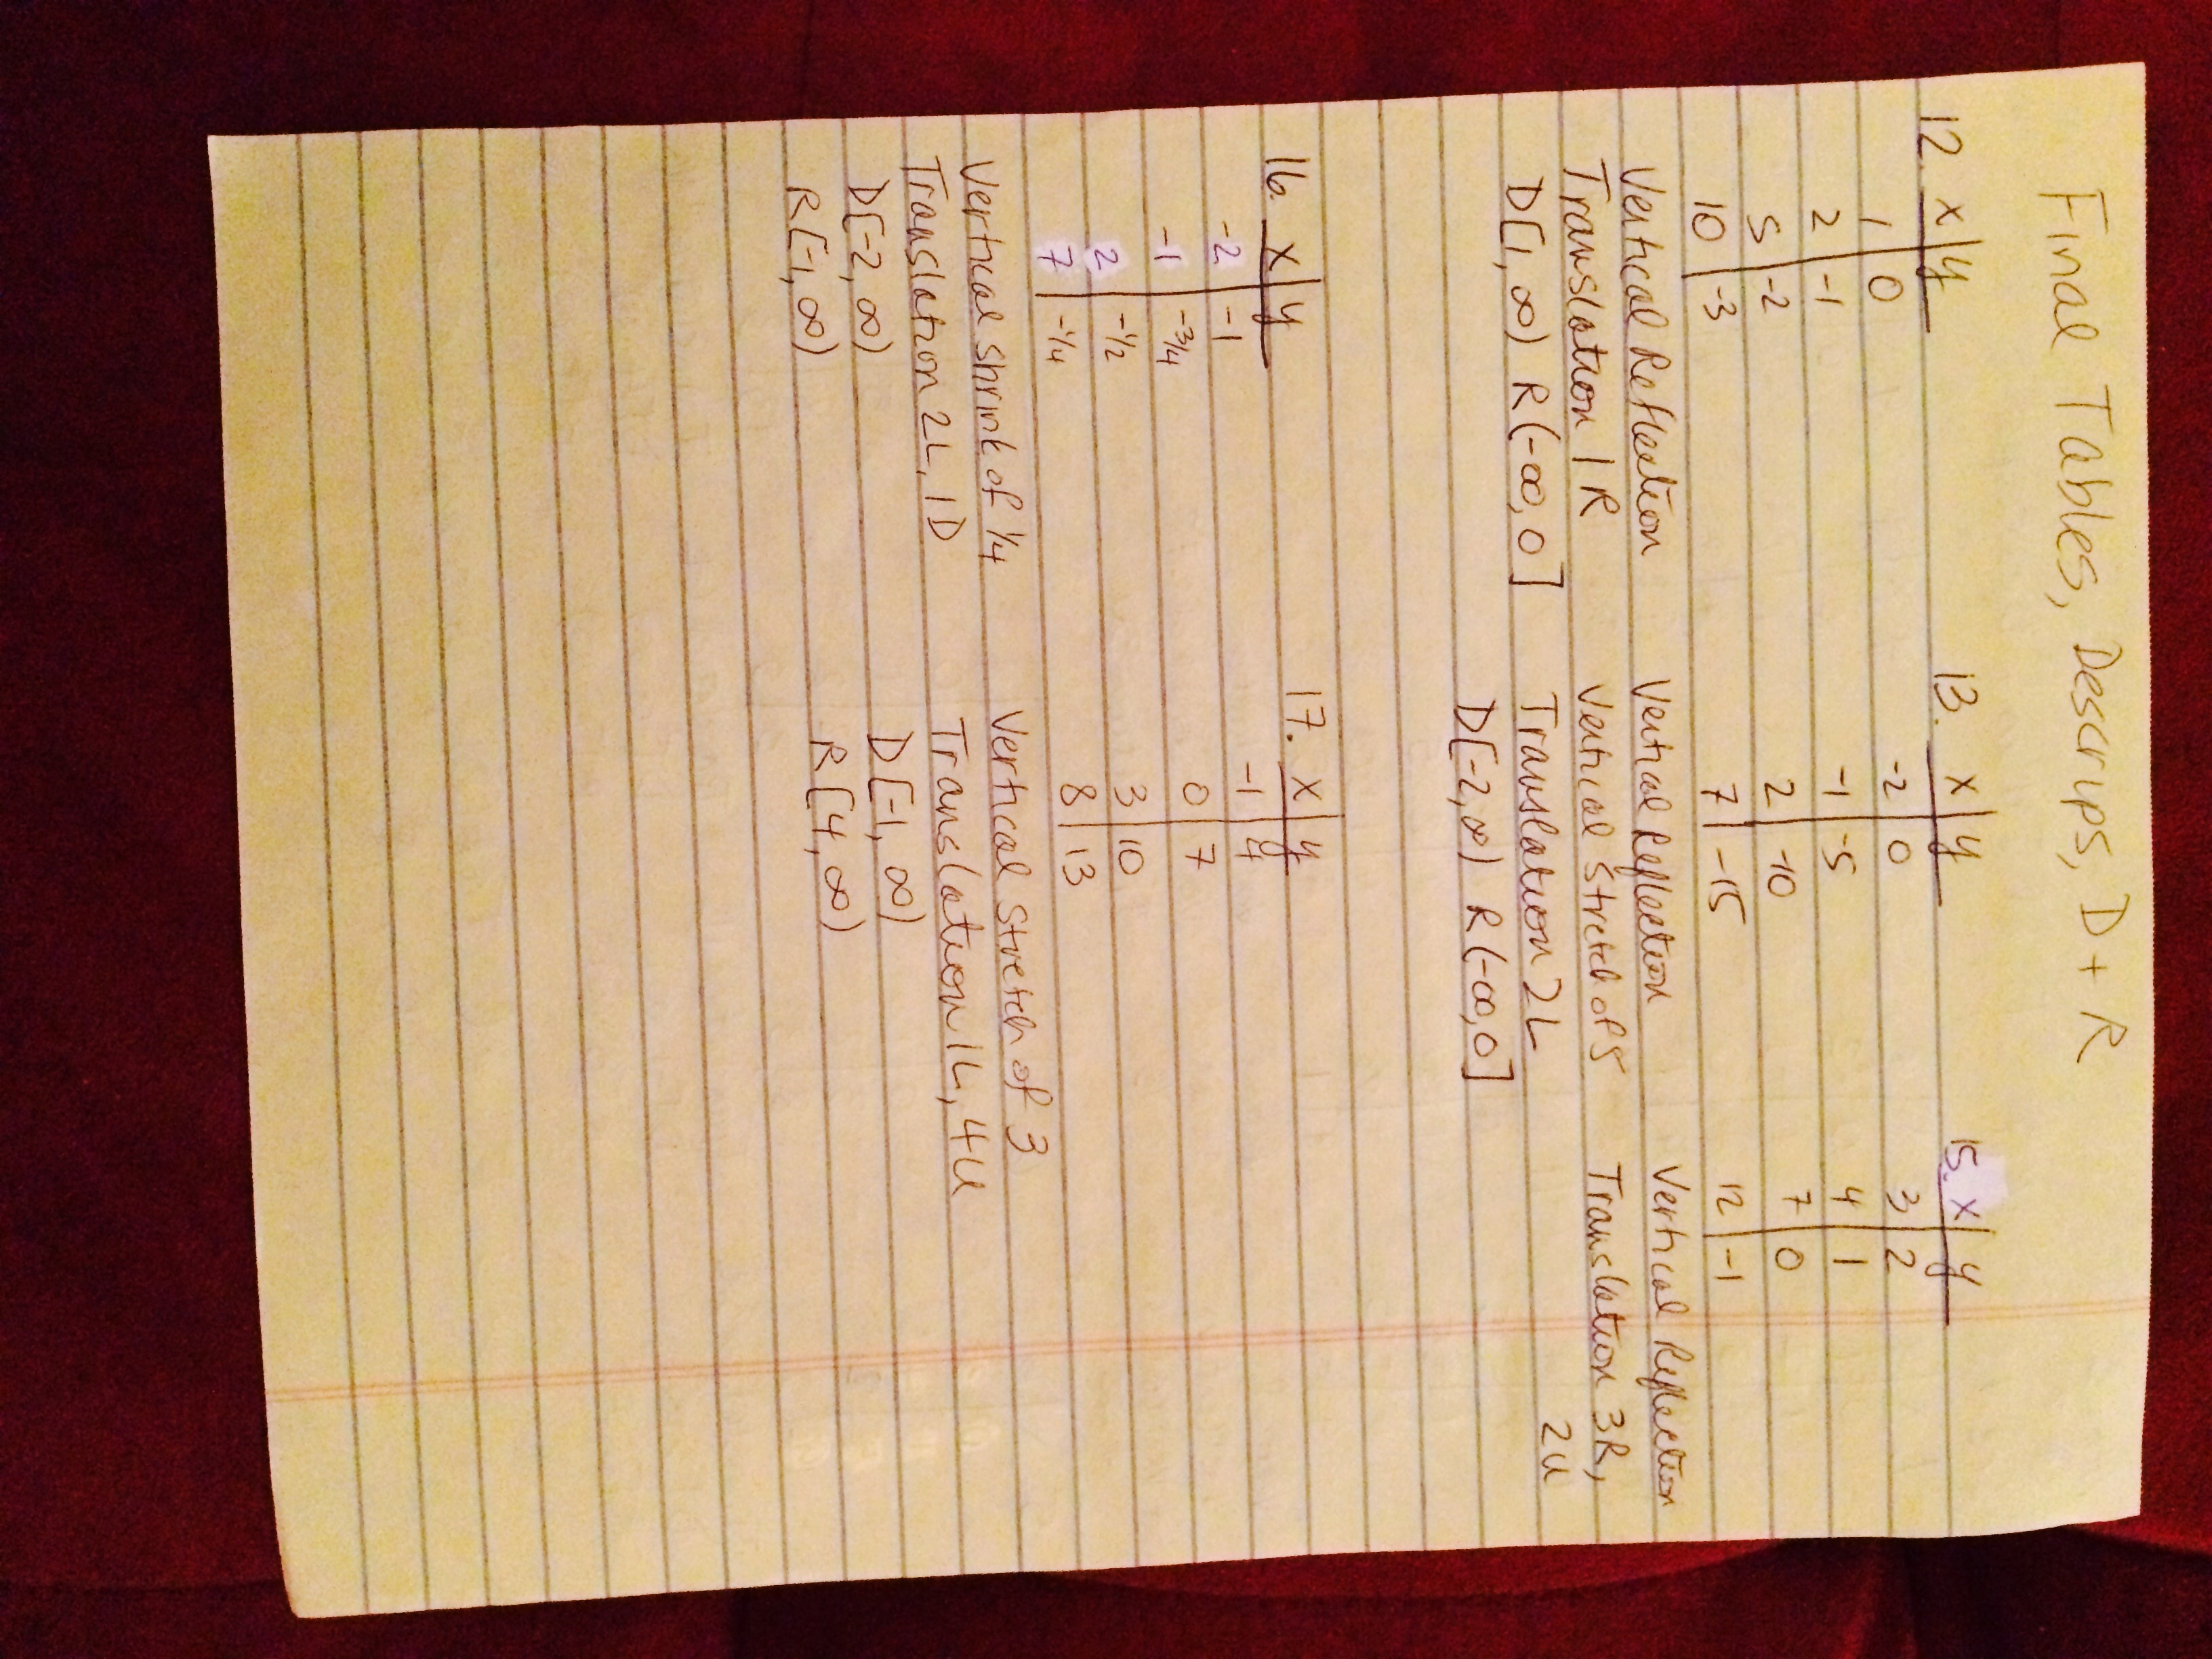 Final Tables, Descrips, D + R
12. x | y
1 | 0
2 | -1
5 | -2
10 | -3
Vertical Reflection
Translation 1R
D[1, ∞) R(-∞, 0]
13. x | y
-2 | 0
-1 | -5
2 | -10
7 | -15
Vertical Reflection
Vertical Stretch of 5
Translation 2L
D[-2, ∞) R(-∞, 0]
15. x | y
3 | 2
4 | 1
7 | 0
12 | -1
Vertical Reflection
Translation 3R,
2U
16. x | y
-2 | -1
-1 | -3/4
2 | -1/2
7 | -1/4
Vertical shrink of 1/4
Translation 2L, 1D
D[-2, ∞)
R[-1, ∞)
17. x | y
-1 | 4
0 | 7
3 | 10
8 | 13
Vertical stretch of 3
Translation 1L, 4U
D[-1, ∞)
R[4, ∞)